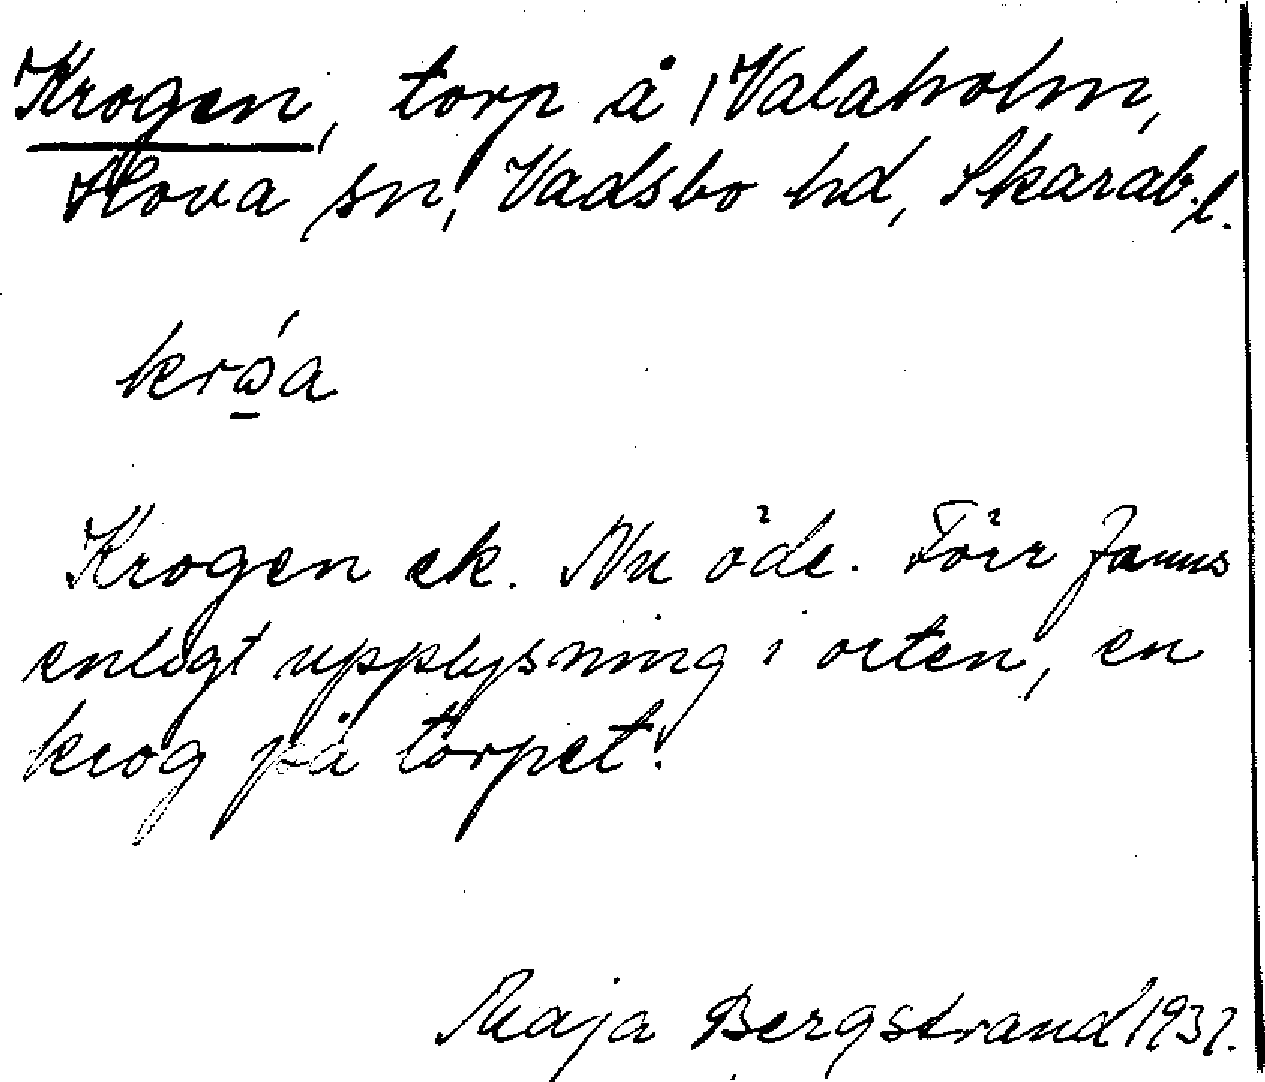 Krogen, torp å Valaholm,
Hova sn, Vadsbo hd, Skarab.l.
Krogen ek. Nu öde. Förr fanns
enligt upplysning i orten, en
krog på torpet.
Maja Bergstrand 1937.